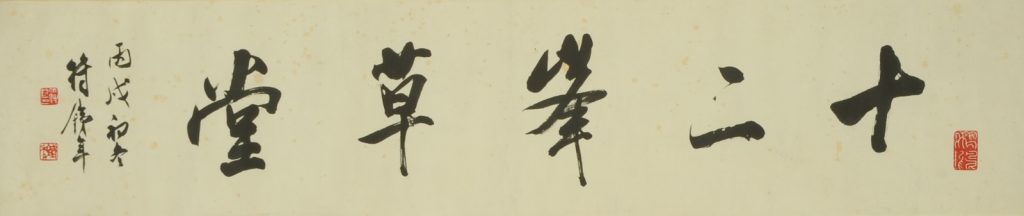 十二峯草堂
丙戌初冬
符銕年